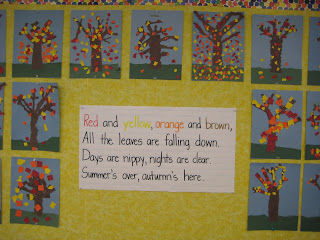 Red and yellow, orange and brown,
All the leaves are falling down.
Days are nippy, nights are clear.
Summer's over, autumn's here.